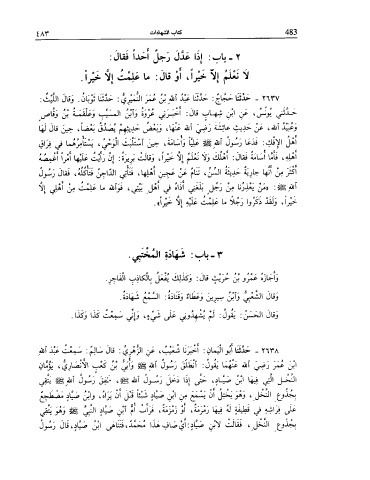 ٤٨٣ كتاب الشهادات 483
٢ ـ باب: إِذَا عَدَّلَ رَجُلٌ أَحَداً فَقَالَ:
لَا نَعْلَمُ إِلَّا خَيْراً، أَوْ قَالَ: ما عَلِمْتُ إِلَّا خَيْراً.
٢٦٣٧ ـ حَدَّثَنَا حَجَّاجٌ: حَدَّثَنَا عَبْدُ اللهِ بْنُ عُمَرَ النُّمَيْرِيُّ: حَدَّثَنَا ثَوْبَانُ. وَقَالَ اللَّيْثُ:
حَدَّثَنِي يُونُسُ، عَنِ ابْنِ شِهَابٍ قَالَ: أَخْبَرَنِي عُرْوَةُ وَابْنُ المسَيَّبِ وَعَلْقَمَةُ بْنُ وَقَّاصٍ
وَعُبَيْدُ اللهِ، عَنْ حَدِيثِ عائِشَةَ رَضِيَ اللهُ عَنْهَا، وَبَعْضُ حَدِيثِهِمْ يُصَدِّقُ بَعْضاً، حِينَ قَالَ لَهَا
أَهْلُ الإِفْكِ: فَدَعَا رَسُولُ اللهِ ﷺ عَلِيّاً وَأُسَامَةَ، حِينَ اسْتَلْبَثَ الْوَحْيُ، يَسْتَأْمِرُهُمَا في فِرَاقِ
أَهْلِهِ، فَأَمَّا أُسَامَةُ فَقَالَ: أَهْلُكَ وَلَا نَعْلَمُ إِلَّا خَيْراً، وَقَالَتْ بَرِيرَةُ: إِنْ رَأَيْتُ عَلَيْهَا أَمْراً أَغْمِصُهُ
أَكْثَرَ مِنْ أَنَّهَا جارِيَةٌ حَدِيثَةُ السِّنِّ، تَنَامُ عَنْ عَجِينِ أَهْلِهَا، فَتَأْتِي الدَّاجِنُ فَتَأْكُلُهُ، فَقَالَ رَسُولُ
اللهِ ﷺ: «مَنْ يَعْذِرُنَا مِنْ رَجُلٍ بَلَغَنِي أَذَاهُ في أَهْلِ بَيْتِي، فَوَاللهِ ما عَلِمْتُ مِنْ أَهْلِي إِلَّا
خَيْراً، وَلَقَدْ ذَكَرُوا رَجُلاً ما عَلِمْتُ عَلَيْهِ إِلَّا خَيْراً».
٣ ـ باب: شَهَادَةِ المُخْتَبِي.
وَأَجَازَهُ عَمْرُو بْنُ حُرَيْثٍ قَالَ: وَكَذلِكَ يُفْعَلُ بِالْكَاذِبِ الْفَاجِرِ.
وَقَالَ الشَّعْبِيُّ وَابْنُ سِيرِينَ وَعَطَاءٌ وَقَتَادَةُ: السَّمْعُ شَهَادَةٌ.
وَقَالَ الحَسَنُ: يَقُولُ: لَمْ يُشْهِدُونِي عَلَى شَيْءٍ، وَإِنِّي سَمِعْتُ كَذَا وَكَذَا.
٢٦٣٨ ـ حَدَّثَنَا أَبُو الْيَمَانِ: أَخْبَرَنَا شُعَيْبٌ، عَنِ الزُّهْرِيِّ: قَالَ سَالِمٌ: سَمِعْتُ عَبْدَ اللهِ
ابْنَ عُمَرَ رَضِيَ اللهُ عَنْهُمَا يَقُولُ: انْطَلَقَ رَسُولُ اللهِ ﷺ وَأُبَيُّ بْنُ كَعْبٍ الْأَنْصَارِيُّ، يَؤُمَّانِ
النَّخْلَ الَّتِي فِيهَا ابْنُ صَيَّادٍ، حَتَّى إِذَا دَخَلَ رَسُولُ اللهِ ﷺ، طَفِقَ رَسُولُ اللهِ ﷺ يَتَّقِي
بِجُذُوعِ النَّخْلِ، وَهُوَ يَخْتِلُ أَنْ يَسْمَعَ مِنِ ابْنِ صَيَّادٍ شَيْئاً قَبْلَ أَنْ يَرَاهُ، وَابْنُ صَيَّادٍ مُضْطَجِعٌ
عَلَى فِرَاشِهِ في قَطِيفَةٍ لَهُ فِيهَا رَمْرَمَةٌ، أَوْ زَمْزَمَةٌ، فَرَأَتْ أُمُّ ابْنِ صَيَّادٍ النَّبِيَّ ﷺ وَهُوَ يَتَّقِي
بِجُذُوعِ النَّخْلِ، فَقَالَتْ لابْنِ صَيَّادٍ: أَيْ صَافِ هذا مُحَمَّدٌ، فَتَنَاهَى ابْنُ صَيَّادٍ، قَالَ رَسُولُ